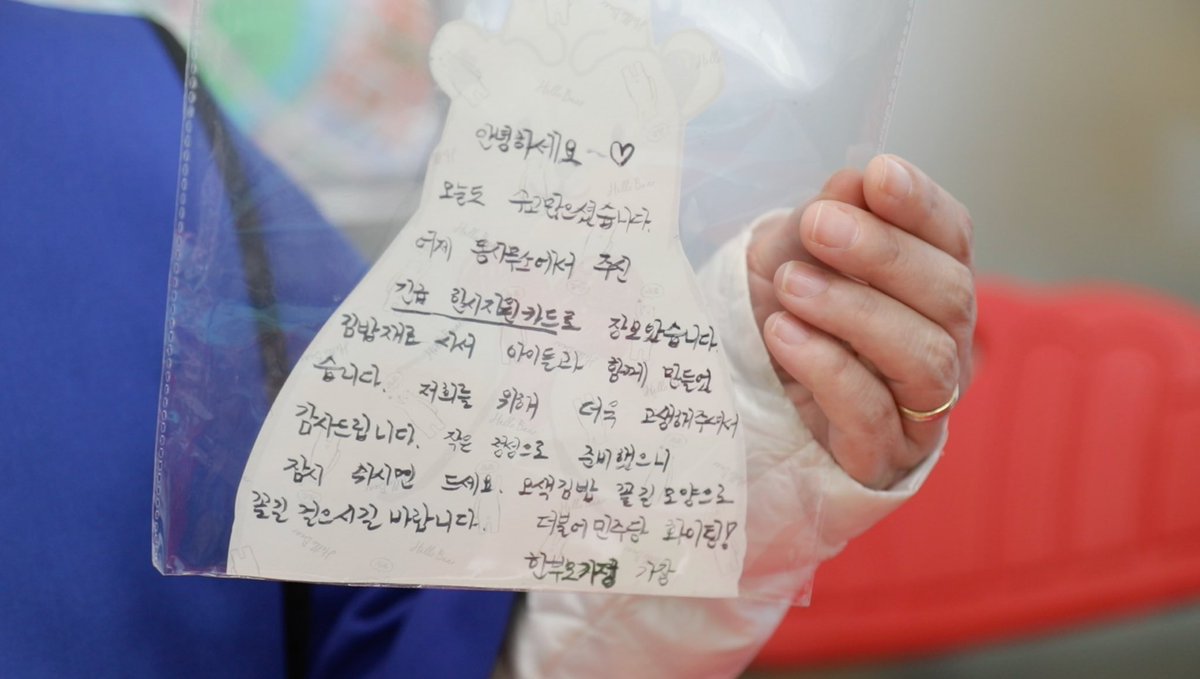 안녕하세요~♡
오늘도 수고많으셨습니다.
어제 동사무소에서 주신
긴급 한시지원카드로 장보았습니다.
김밥재료 사서 아이들과 함께 만들었
습니다. 저희를 위해 더욱 고생해주셔서
감사드립니다. 작은 정성으로 준비했으니
잠시 쉬시면 드세요. 오색김밥 꽃길 모양으로
꽃길 걸으시길 바랍니다. 더불어민주당 화이팅!
한부모가정 가장
HelloBear
HelloBear
HelloBear